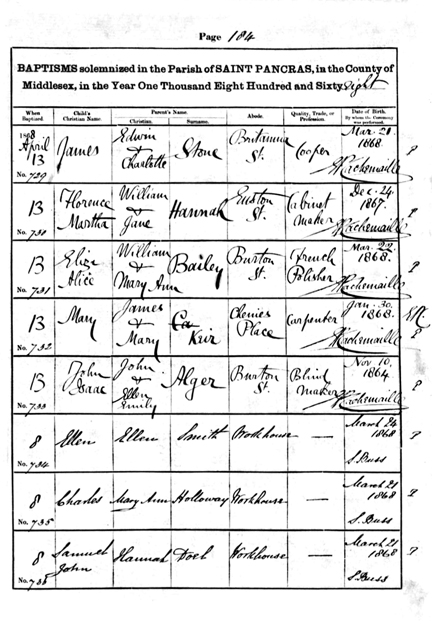 Page 184
BAPTISMS solemnized in the Parish of SAINT PANCRAS, in the County of
Middlesex, in the Year One Thousand Eight Hundred and Sixty eight
When Baptized. Child's Christian Name. Parent's Name. Christian. Surname. Abode. Quality, Trade, or Profession. Date of Birth. By whom the Ceremony was performed.
1868 April 13 No. 729 James Edwin & Charlotte Stone Britannia St. Cooper Mar. 20. 1868.
13 No. 730 Florence Martha William & Jane Hannah Euston St. Cabinet maker Dec. 24 1867.
13 No. 731 Eliza Alice William & Mary Ann Bailey Burton St. French Polisher Mar. 22. 1868.
13 No. 732 Mary James & Mary Keir Chenies Place Carpenter Jan. 30. 1868.
13 No. 733 John Isaac John & Ellen Emily Alger Burton St. Blind maker Nov 10, 1864
8 No. 734 Ellen Ellen Smith Workhouse — March 24 1868 S. Buss
8 No. 735 Charles Mary Ann Holloway Workhouse — March 21 1868 S. Buss
8 No. 736 Samuel John Hannah Doel Workhouse — March 21 1868 S. Buss